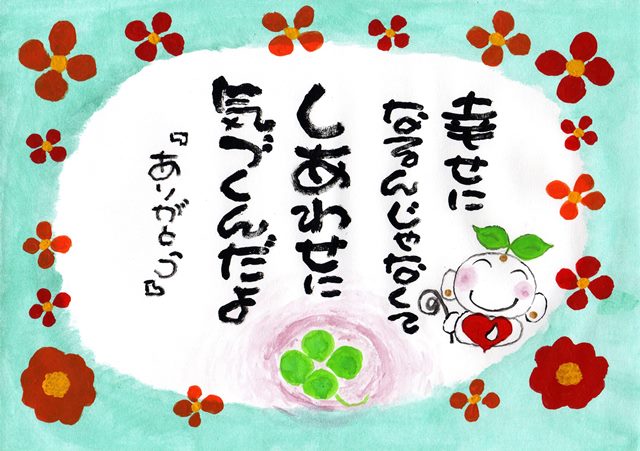 幸せに
なるんじゃなくて
しあわせに
気づくんだよ
『ありがとう』